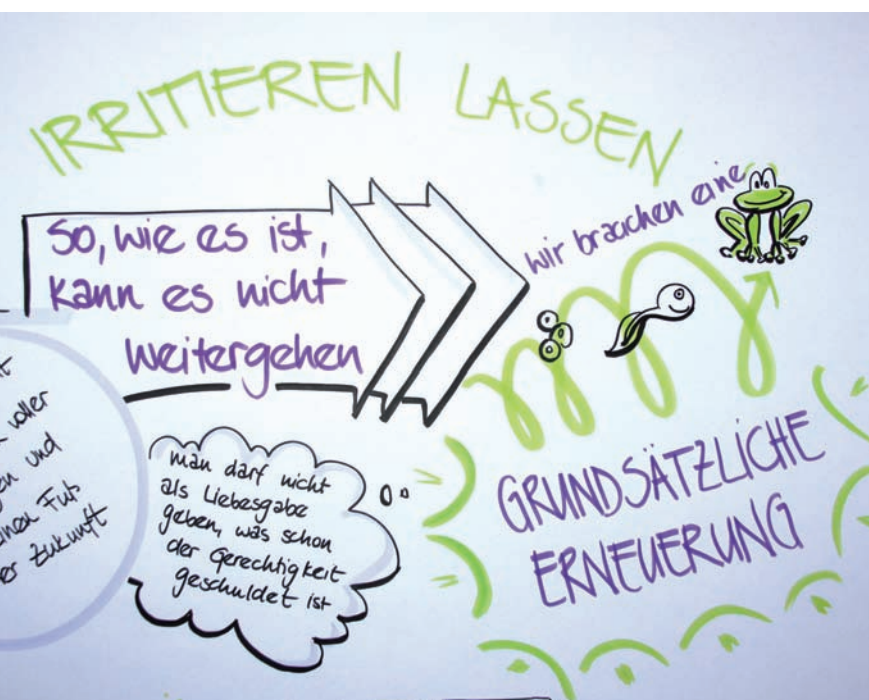 IRRITIEREN LASSEN
So, wie es ist,
kann es nicht
weitergehen
wir brauchen eine
GRUNDSÄTZLICHE
ERNEUERUNG
voller
und
Zukunft
man darf nicht
als Liebesgabe
geben, was schon
der Gerechtigkeit
geschuldet ist